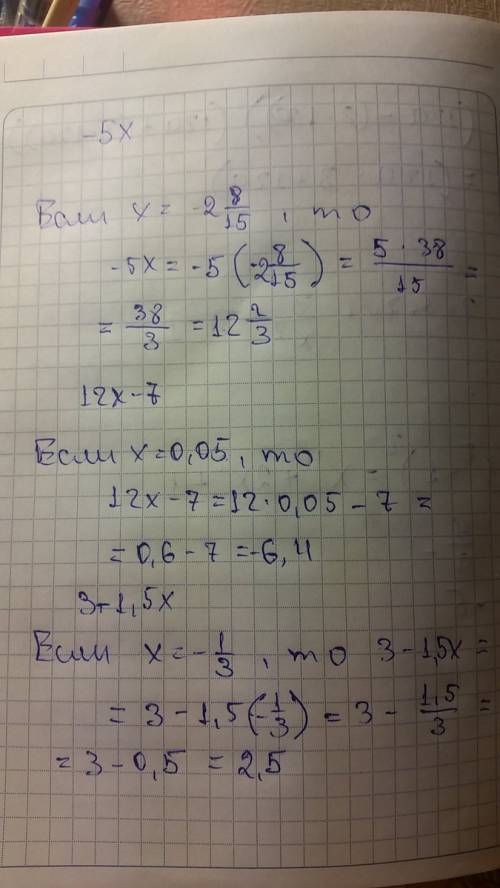 -5x
Если x = -2 8/15, то
-5x = -5 (-2 8/15) = 5 · 38/15 =
= 38/3 = 12 2/3
12x - 7
Если x = 0,05, то
12x - 7 = 12 · 0,05 - 7 =
= 0,6 - 7 = -6,4
3 - 1,5x
Если x = -1/3, то 3 - 1,5x =
= 3 - 1,5 (-1/3) = 3 - 1,5/3 =
= 3 - 0,5 = 2,5